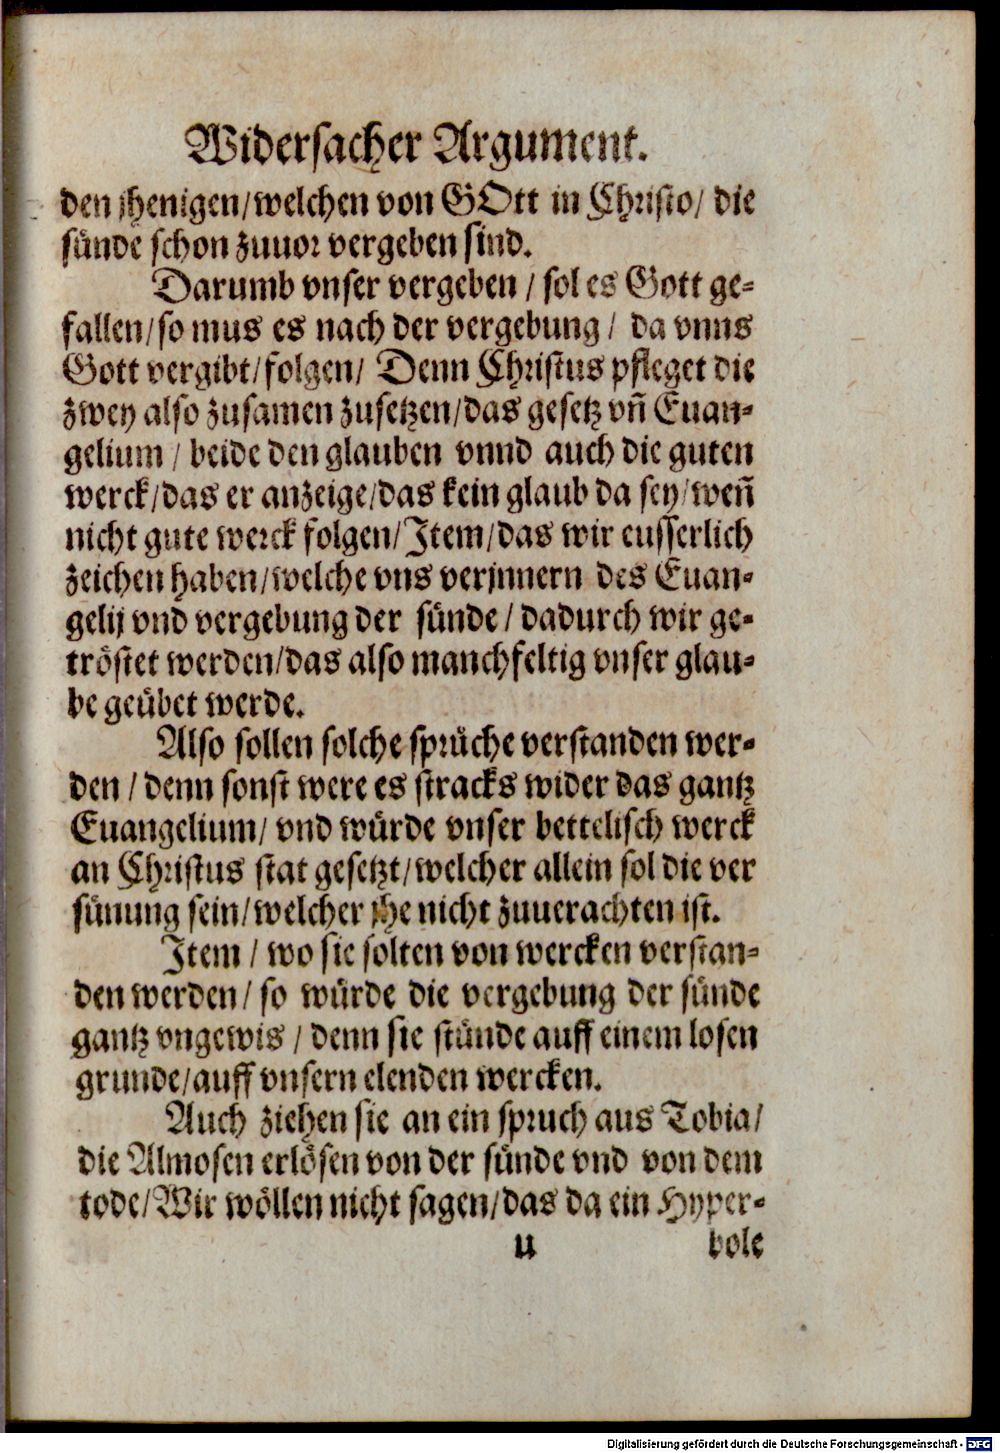 Widersacher Argument.
den jhenigen/welchen von GOtt in Christo/ die
sünde schon zuuor vergeben sind.
Darumb vnser vergeben / sol es Gott ge-
fallen/so mus es nach der vergebung / da vnns
Gott vergibt/folgen/ Denn Christus pfleget die
zwey also zusamen zusetzen/das gesetz vñ Euan-
gelium / beide den glauben vnnd auch die guten
werck/das er anzeige/das kein glaub da sey/weñ
nicht gute werck folgen/Item/das wir eusserlich
zeichen haben/welche vns verjnnern des Euan-
gelij vnd vergebung der sünde / dadurch wir ge-
tröstet werden/das also manchfeltig vnser glau-
be geübet werde.
Also sollen solche sprüche verstanden wer-
den / denn sonst were es stracks wider das gantz
Euangelium/ vnd würde vnser bettelisch werck
an Christus stat gesetzt/welcher allein sol die ver
sünung sein/welcher jhe nicht zuuerachten ist.
Item / wo sie solten von wercken verstan-
den werden/ so würde die vergebung der sünde
gantz vngewis / denn sie stünde auff einem losen
grunde/auff vnsern elenden wercken.
Auch ziehen sie an ein spruch aus Tobia/
die Almosen erlösen von der sünde vnd von dem
tode/Wir wöllen nicht sagen/das da ein Hyper-
u bole
Digitalisierung gefördert durch die Deutsche Forschungsgemeinschaft - DFG